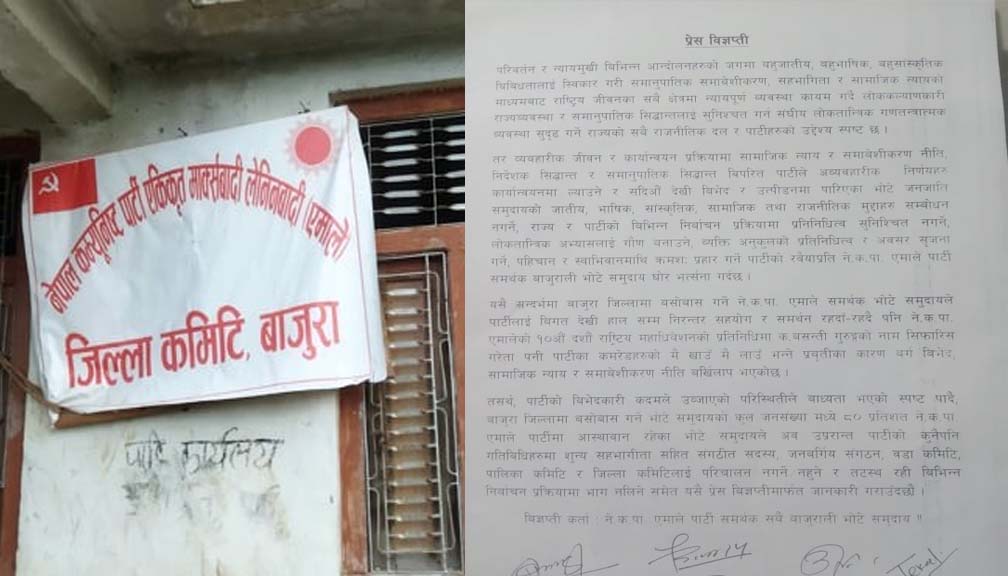 नेपाल कम्यूनिष्ट पार्टी एकिकृत मार्क्सबादी लेनिनबादी (एमाले)
जिल्ला कमिटि, बाजुरा
पार्टी कार्यालय
प्रेस विज्ञप्ती
परिवर्तन र न्यायमुखी विभिन्न आन्दोलनहरुको जगमा बहुजातीय, बहुभाषिक, बहुसांस्कृतिक
विविधतालाई स्विकार गरी समानुपातिक समावेशीकरण, सहभागिता र सामाजिक न्यायको
माध्यमबाट राष्ट्रिय जीवनका सबै क्षेत्रमा न्यायपूर्ण व्यवस्था कायम गर्दै लोककल्याणकारी
राज्यव्यवस्था र समानुपातिक सिद्धान्तलाई सुनिश्चत गर्न संघीय लोकतान्त्रिक गणतन्त्रात्मक
व्यवस्था सुदृढ गर्ने राज्यको सबै राजनीतिक दल र पार्टीहरुको उद्देश्य स्पष्ट छ ।
तर व्यवहारीक जीवन र कार्यान्वयन प्रक्रियामा सामाजिक न्याय र समावेशीकरण नीति,
निर्देशक सिद्धान्त र समानुपातिक सिद्धान्त बिपरित पार्टीले अव्यवहारीक निर्णयहरु
कार्यान्वयनमा ल्याउने र सदिऔं देखी बिभेद र उत्पीडनमा पारिएका भोटे जनजाति
समुदायको जातीय, भाषिक, सांस्कृतिक, सामाजिक तथा राजनीतिक मुद्दाहरु सम्बोधन
नगर्ने, राज्य र पार्टीको विभिन्न निर्वाचन प्रक्रियामा प्रनिनिधित्व सुनिश्चत नगर्ने,
लोकतान्त्रिक अभ्यासलाई गौण बनाउने, व्यक्ति अनुकुलको प्रतिनिधित्व र अवसर सृजना
गर्ने, पहिचान र स्वाभिवानमाथि क्रमशः प्रहार गर्ने पार्टीको रबैयाप्रति ने.क.पा. एमाले पार्टी
समर्थक बाजुराली भोटे समुदाय घोर भर्त्सना गर्दछ ।
यसै सन्दर्भमा बाजुरा जिल्लामा बसोबास गर्ने ने.क.पा. एमाले समर्थक भोटे समुदायले
पार्टीलाई बिगत देखी हाल सम्म निरन्तर सहयोग र समर्थन रहदाँ-रहदै पनि ने.क.पा.
एमालेको १०औं दशौ राष्ट्रिय महाधिवेशनको प्रतिनिधिमा क.बसन्ती गुरुङ्गको नाम सिफारिस
गरेता पनी पार्टीका कमरेडहरुको मै खाउँ मै लाउँ भन्ने प्रवृतीका कारण वर्ग बिभेद,
सामाजिक न्याय र समावेशीकरण नीति बर्खिलाप भएकोछ ।
तसर्थ, पार्टीको बिभेदकारी कदमले उब्जाएको परिस्थितीले वाध्यता भएको स्पष्ट पार्दै,
बाजुरा जिल्लामा बसोबास गर्ने भोटे समुदायको कूल जनसंख्या मध्ये ८० प्रतिशत ने.क.पा.
एमाले पार्टीमा आस्थावान रहेका भोटे समुदायले अब उप्रान्त पार्टीको कुनैपनि
गतिविधिहरुमा शुन्य सहभागीता सहित संगठीत सदस्य, जनबर्गिय संगठन, वडा कमिटि,
पालिका कमिटि र जिल्ला कमिटिलाई परिचालन नगर्ने, नहुने र तटस्थ रही विभिन्न
निर्वाचन प्रक्रियामा भाग नलिने समेत यसै प्रेस विज्ञप्तीमार्फत जानकारी गराउंदछौं ।
विज्ञप्ती कर्ता : ने.क.पा. एमाले पार्टी समर्थक सबै बाजुराली भोटे समुदाय ॥